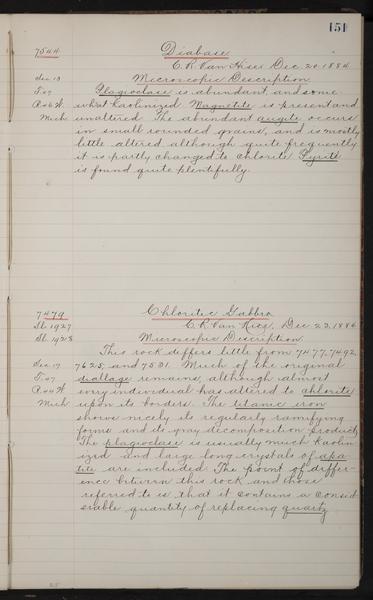 151
7544 Diabase
C. R. Van Hise Dec 20, 1884
Sec 13 Microscopic Description
T 47 Plagioclase is abundant and some
R 46 W what kaolinized Magnetite is present and
Mich unaltered. The abundant augite occurs
in small rounded grains, and is mostly
little altered although quite frequently
it is partly changed to chlorite Pyrite
is found quite plentifully.
7479 Chloritic Gabbro
Sl. 1927 C. R. Van Hise, Dec 23, 1884
Sl. 1928 Microscopic Description
This rock differs little from 7477, 7492,
Sec 17 7625, and 7531. Much of the original
T 47 diallage remains, although almost
R 44 W every individual has altered to chlorite
Mich upon its borders. The titanic iron
shows nicely its regularly ramifying
forms and its gray decomposition product,
The plagioclase is usually much kaolin
ized and large long crystals of apa-
tite are included. The point of differ-
ence between this rock and those
referred to is that it contains a consid
erable quantity of replacing quartz